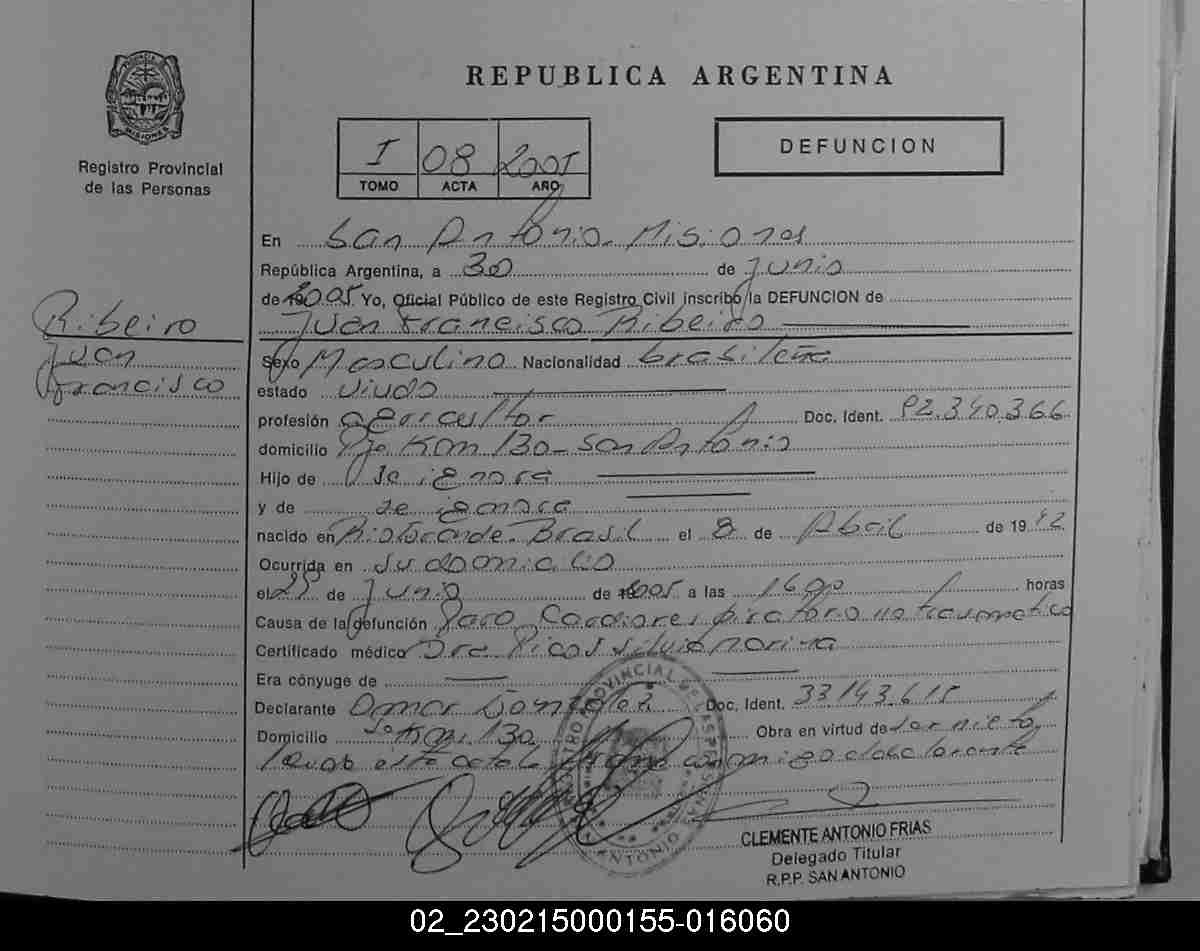 REPUBLICA ARGENTINA
PROVINCIA DE MISIONES
Registro Provincial
de las Personas
I 08 2005
TOMO ACTA AÑO
DEFUNCION
En San Antonio - Misiones
República Argentina, a 30 de Junio
de 2005 Yo, Oficial Público de este Registro Civil inscribo la DEFUNCION de
Juan Francisco Ribeiro
Ribeiro
Juan
Francisco
Sexo Masculino Nacionalidad brasileña
estado viudo
profesión agricultor Doc. Ident. 92.340.366
domicilio Pje Km 130 - San Antonio
Hijo de Se ignora
y de se ignora
nacido en Rio Grande - Brasil el 8 de Abril de 1942
Ocurrida en su domicilio
el 29 de Junio de 2005 a las 16 horas
Causa de la defunción Paro Cardiorespiratorio no traumatico
Certificado médico Dra Silvia Marina
Era cónyuge de
Declarante Omar Doc. Ident. 33143.615
Domicilio Km 130 Obra en virtud de ser nieto
esta acta conmigo el declarante
CLEMENTE ANTONIO FRIAS
Delegado Titular
R.P.P. SAN ANTONIO
02_230215000155-016060